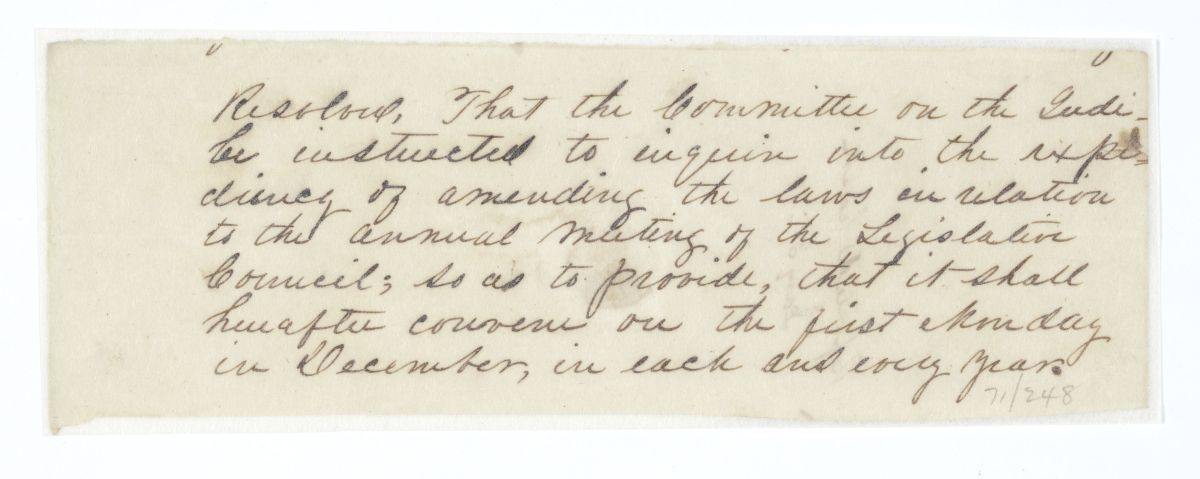 Resolved, That the Committee on the Judi-
be instructed to inquire into the expe=
diency of amending the laws in relation
to the annual meeting of the Legislative
Council; so as to provide, that it shall
hereafter convene on the first Monday
in December, in each and every year.
71/248